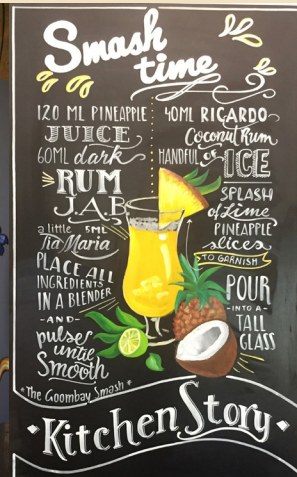 Smash
time
120 ML PINEAPPLE
JUICE
60ML dark
RUM
JAB
a little 5ML
Tia Maria
PLACE ALL
INGREDIENTS
IN A BLENDER
-AND-
pulse
until
Smooth
40ML RICARDO
Coconut Rum
HANDFUL OF
ICE
SPLASH
of Lime
PINEAPPLE
slices
TO GARNISH
POUR
-INTO A-
TALL
GLASS
*The Goombay Smash*
•Kitchen Story•